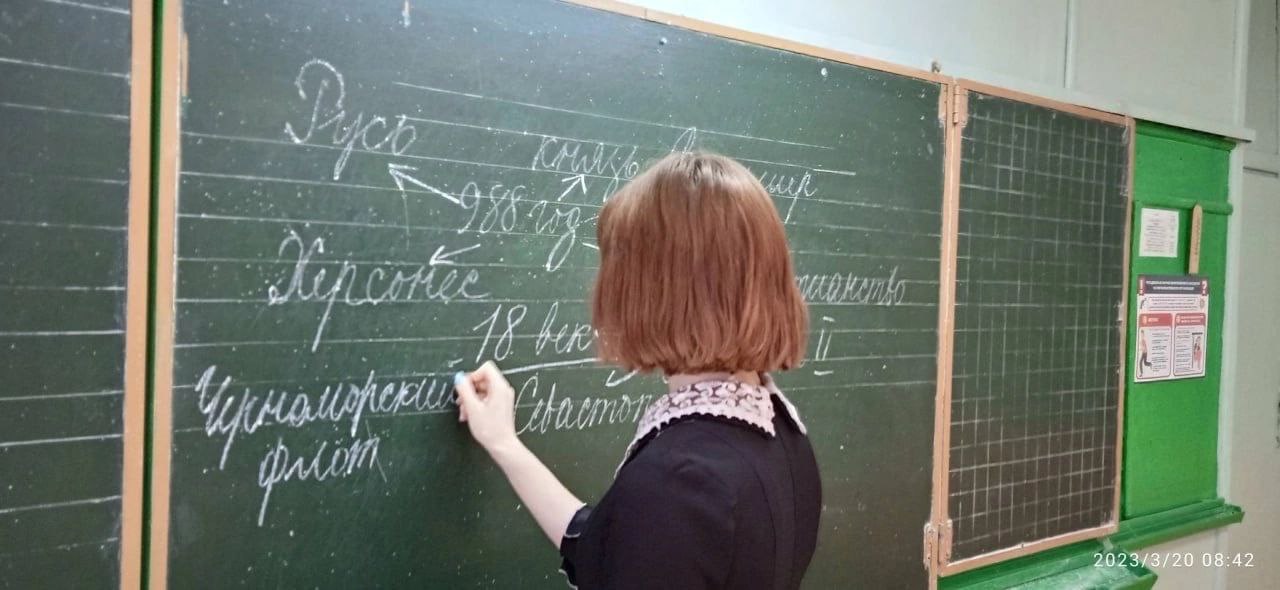 Русь
князь
988 год
Херсонес
тианство
18 век
II
Черноморский
Севастоп
флот
2023/3/20 08:42